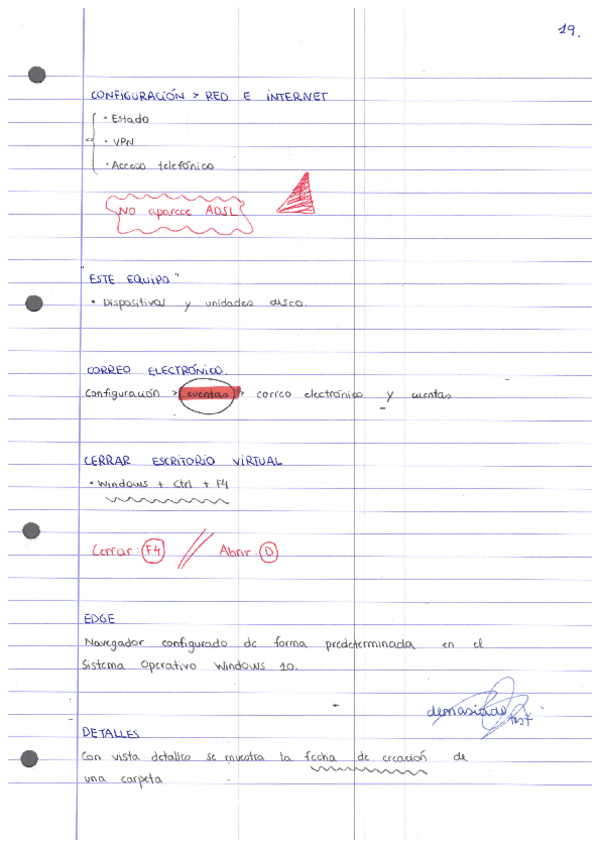 19.
CONFIGURACIÓN > RED E INTERNET
• Estado
• VPN
• Acceso telefónico
NO aparece ADSL
"ESTE EQUIPO"
• Dispositivos y unidades disco.
CORREO ELECTRÓNICO.
Configuración > cuentas > correo electrónico y cuentas
CERRAR ESCRITORIO VIRTUAL
• Windows + Ctrl + F4
Cerrar: F4 // Abrir: D
EDGE
Navegador configurado de forma predeterminada en el
Sistema Operativo Windows 10.
demasiado
DETALLES
Con vista detalles se muestra la fecha de creación de
una carpeta